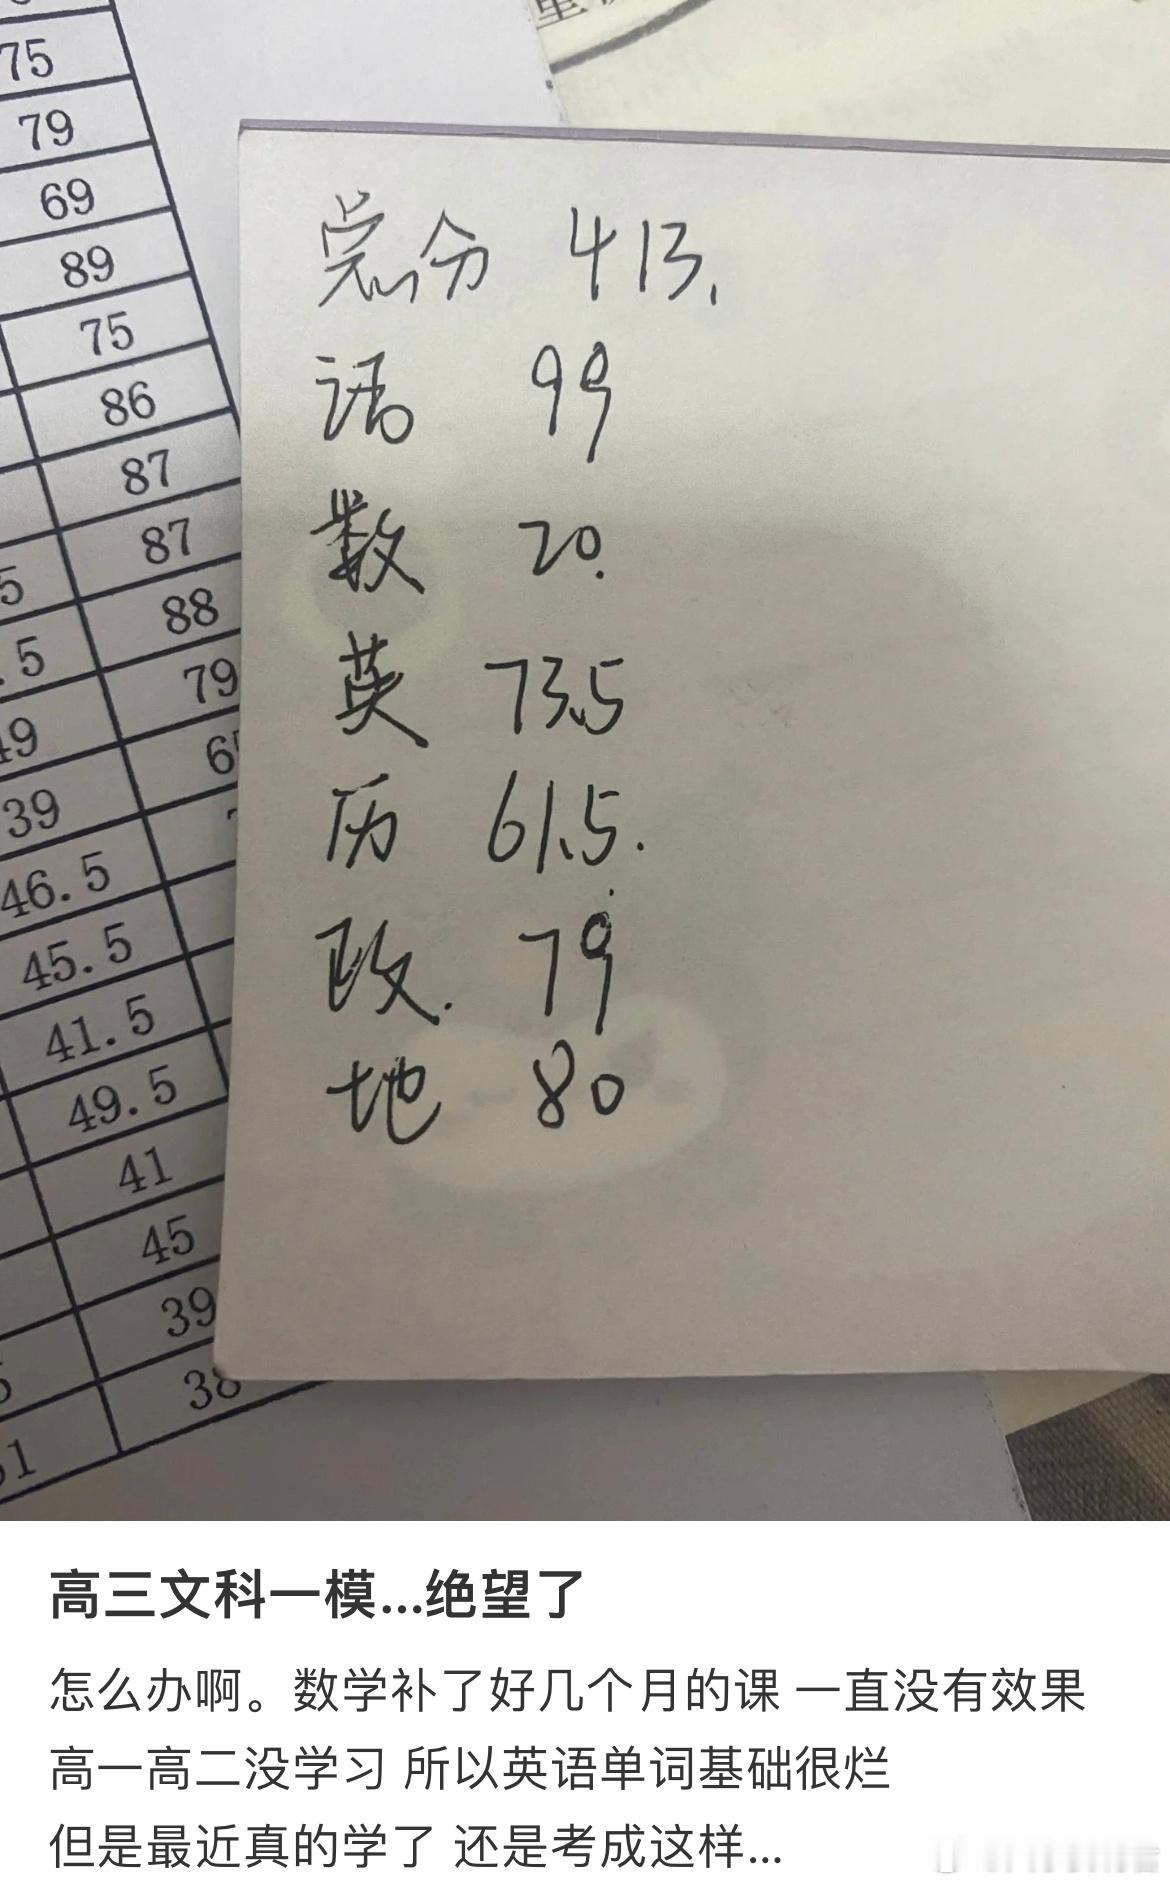 75
79
69
89
75
86
87
87
88
79
39
46.5
45.5
41.5
49.5
41
45
39
38
总分 413.
语 99
数 20.
英 73.5
历 61.5.
政. 79
地 80
高三文科一模...绝望了
怎么办啊。数学补了好几个月的课 一直没有效果
高一高二没学习 所以英语单词基础很烂
但是最近真的学了 还是考成这样...